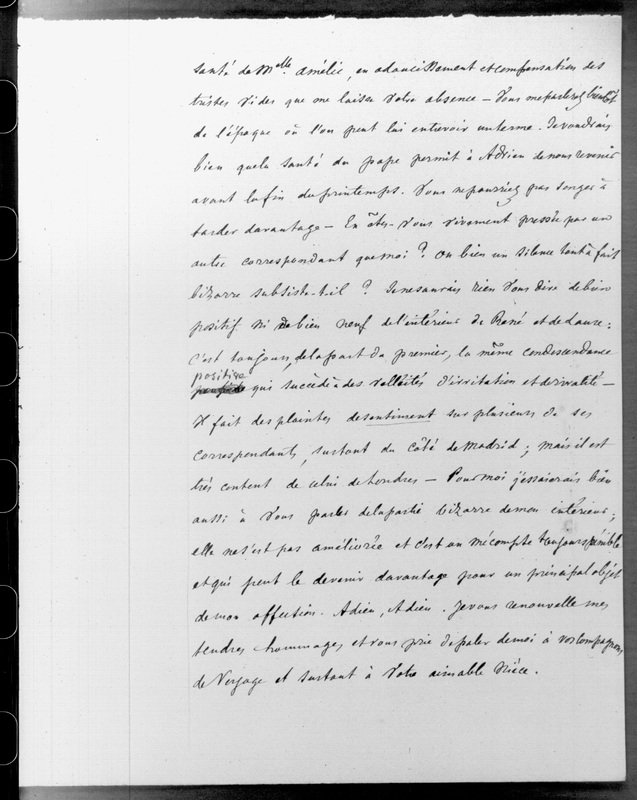 santé de Mlle. Amélie, en adoucissement et compensation des
tristes vides que me laisse votre absence — Vous me parlerez bientôt
de l'époque où l'on peut lui entrevoir un terme. Je voudrais
bien que la santé du pape permit à Adrien de nous revenir
avant la fin du printemps. Vous ne pourriez pas songer à
tarder davantage — En êtes-vous vivement pressée par un
autre correspondant que moi ? Ou bien un silence tout à fait
bizarre subsiste-t-il ? Je ne saurais rien vous dire de bien
positif ni de bien neuf de l'intérieur de René et de Laure :
c'est toujours, de la part du premier, la même condescendance
positive
qui succède à des velléités d'irritation et de rivalité —
Il fait des plaintes de sentiment sur plusieurs de ses
correspondants, surtout du côté de Madrid ; mais il est
très content de celui de Londres — Pour moi j'essaierais bien
aussi à vous parler de la partie bizarre de mon intérieur ;
elle ne s'est pas améliorée et c'est un mécompte toujours pénible
et qui peut le devenir davantage pour un principal objet
de mon affection. Adieu, Adieu. Je vous renouvelle mes
tendres hommages et vous prie de parler de moi à vos compagnons
de Voyage et surtout à votre aimable Nièce.